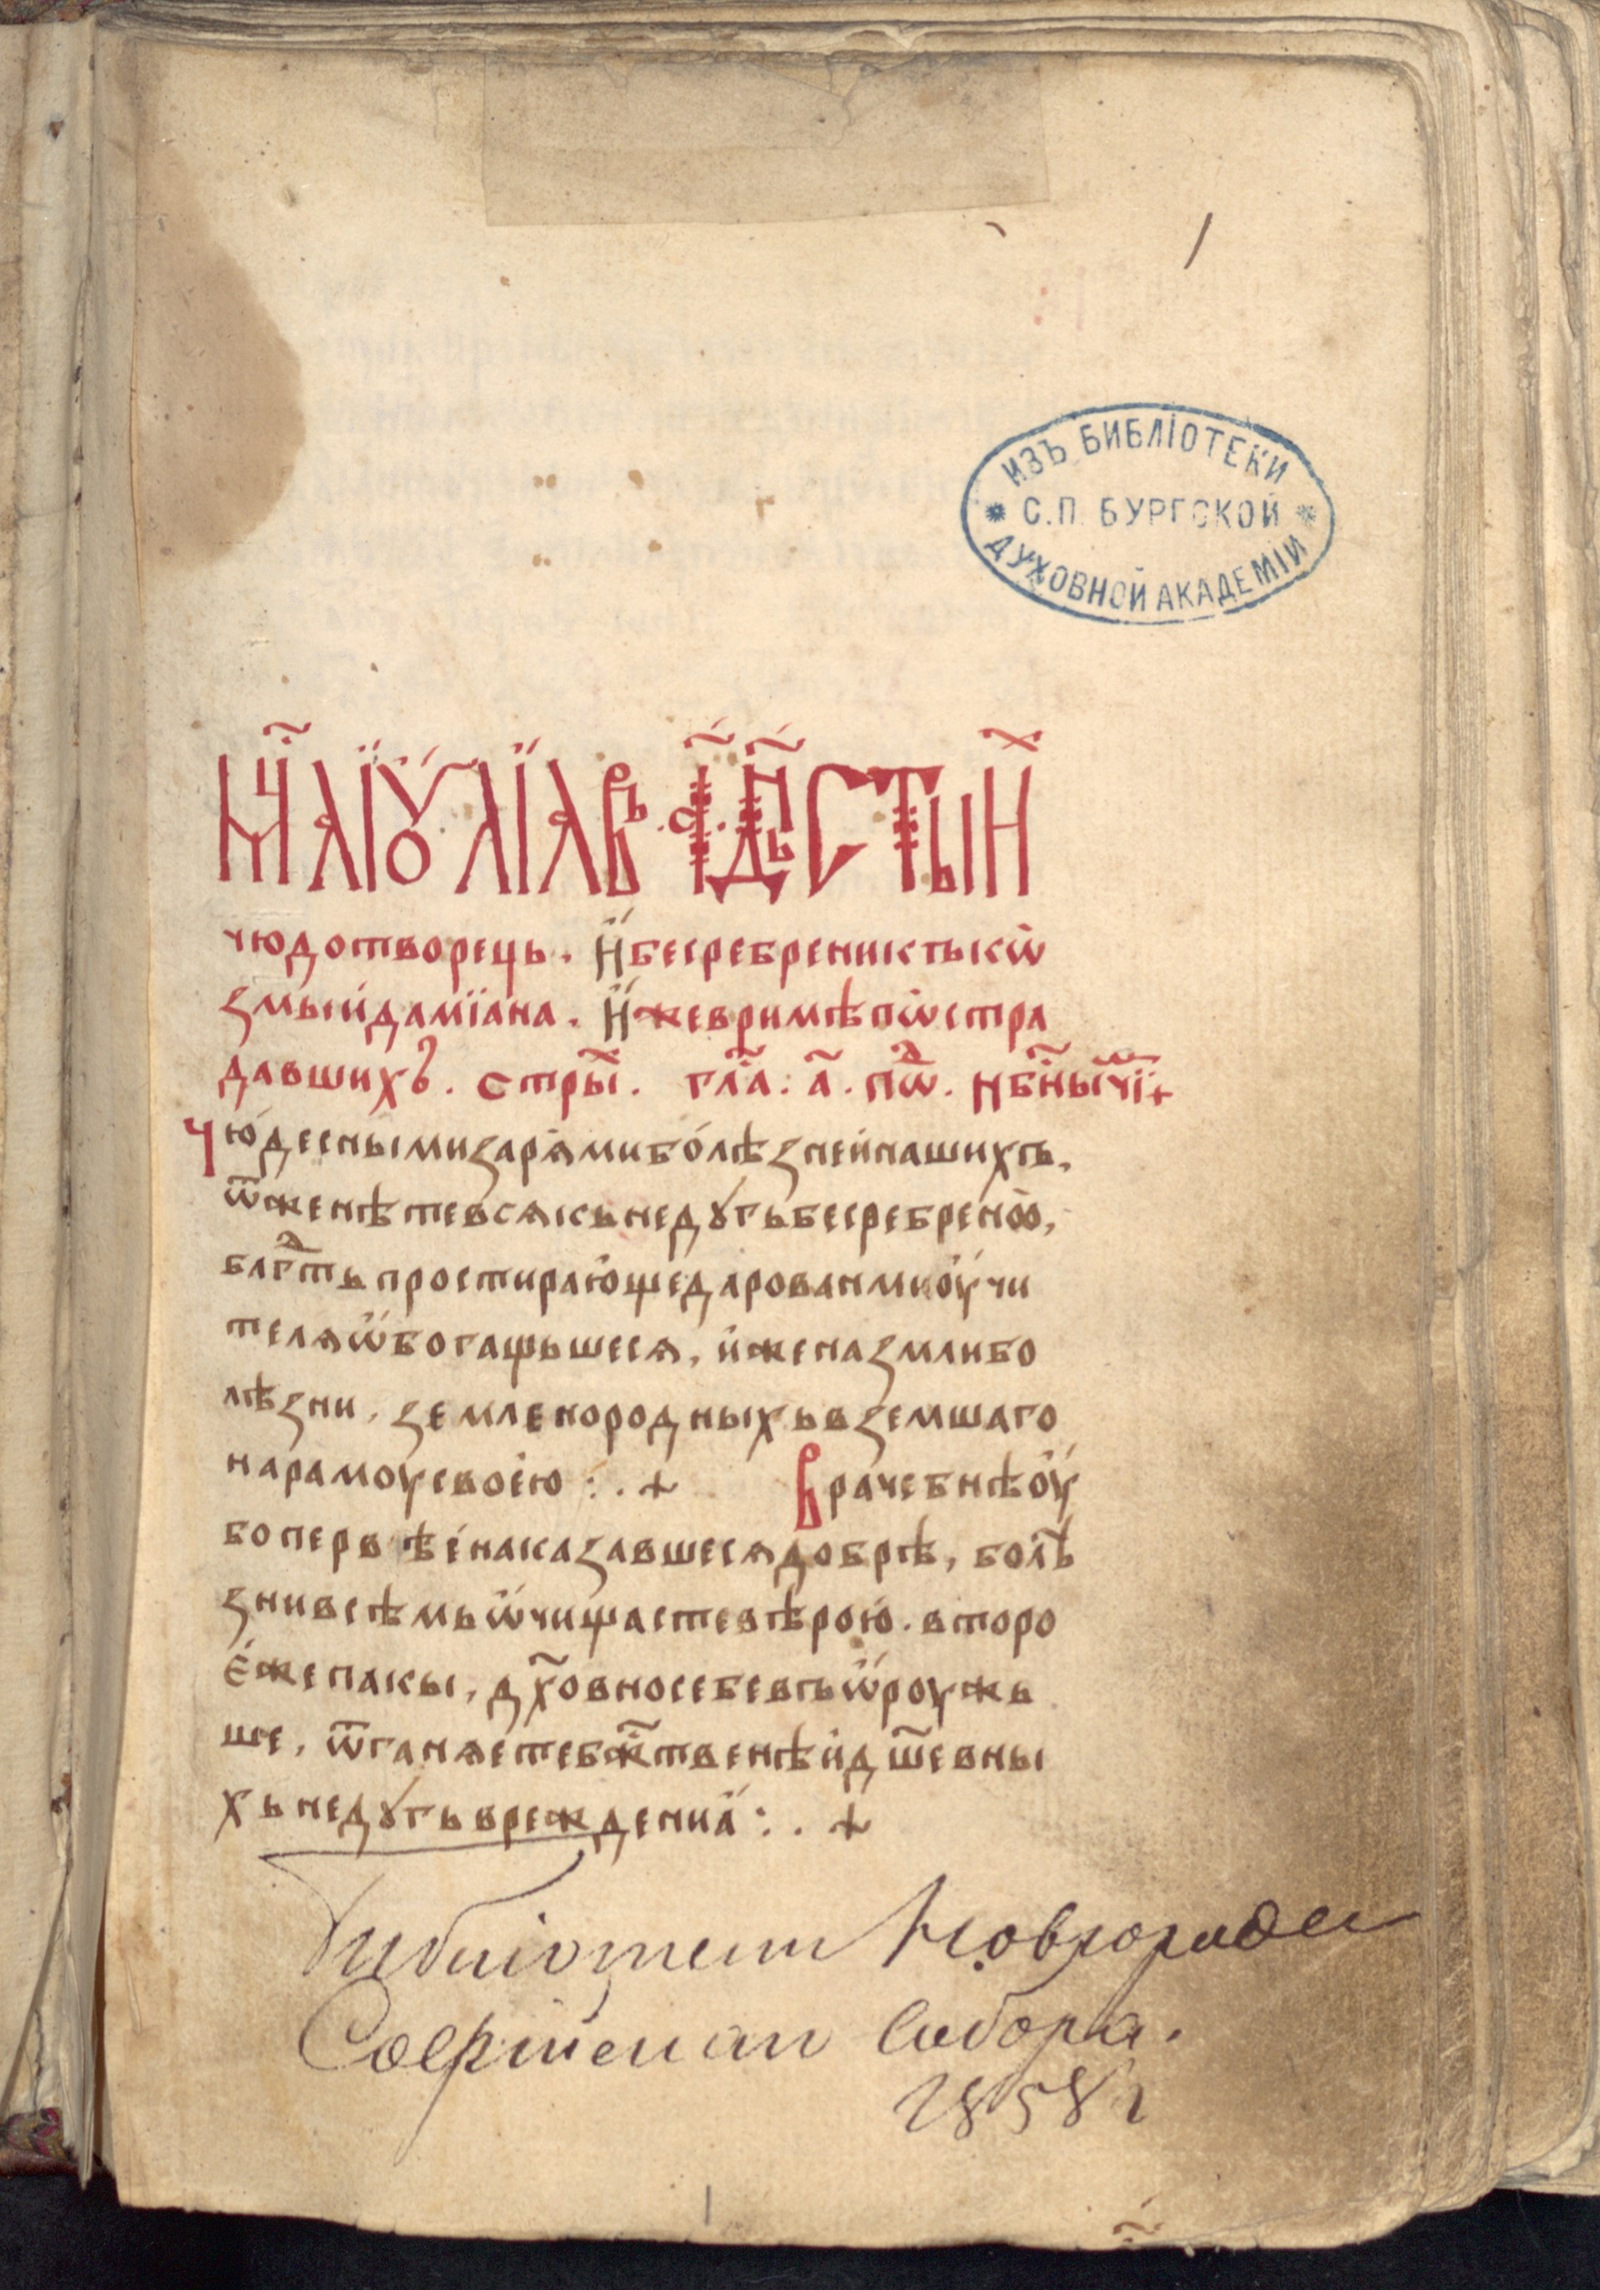 1
ИЗЪ БИБЛІОТЕКИ
С.П. БУРГСКОЙ
ДУХОВНОЙ АКАДЕМІИ
мц҃а іꙋліа въ .а҃. дн҃ь ст҃ых
чюдотворець. и҆ бесребреникъ кѡ
змы и҆ даміана. и҆же в римѣ пѡстра
давших. стр҃ы. гла҃. а҃. пѡд. нбн҃ы чи +
Чю́десными зарѧ́ми бо́лѣзней нашихъ,
ѿженѣте всѧкь недꙋгь бесребренаа,
благⷣть простирающе дарован ми оу҆чи
телѧ ѡ҆богащьшесѧ, и҆же на земли бо
лѣзни, земленородныхь вземшаго
на рамоу своею :. +  Врачебнѣ оу҆
бо первѣе наказавшесѧ добрѣ, болѣ
зни всѣмь ѡ҆чищаете вѣрою. второ
е҆же пакы, дх҃овно себе въѡ҆роужь
ше, ѿганѧете бж҃твенѣ и҆ дш҃евны
хь недꙋгь врежденіа :. +
Библіотеки Новгородск
Софійскаго Собора.
1858 г